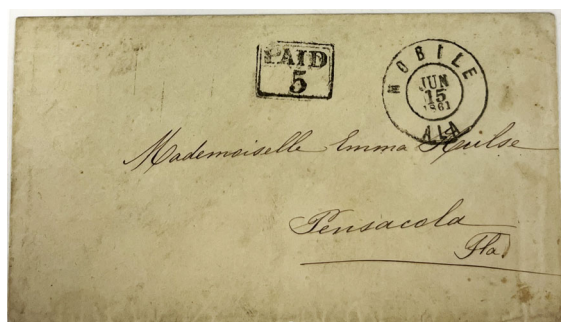 PAID
5
MOBILE
JUN
15
1861
ALA
Mademoiselle Emma
Pensacola
Fla